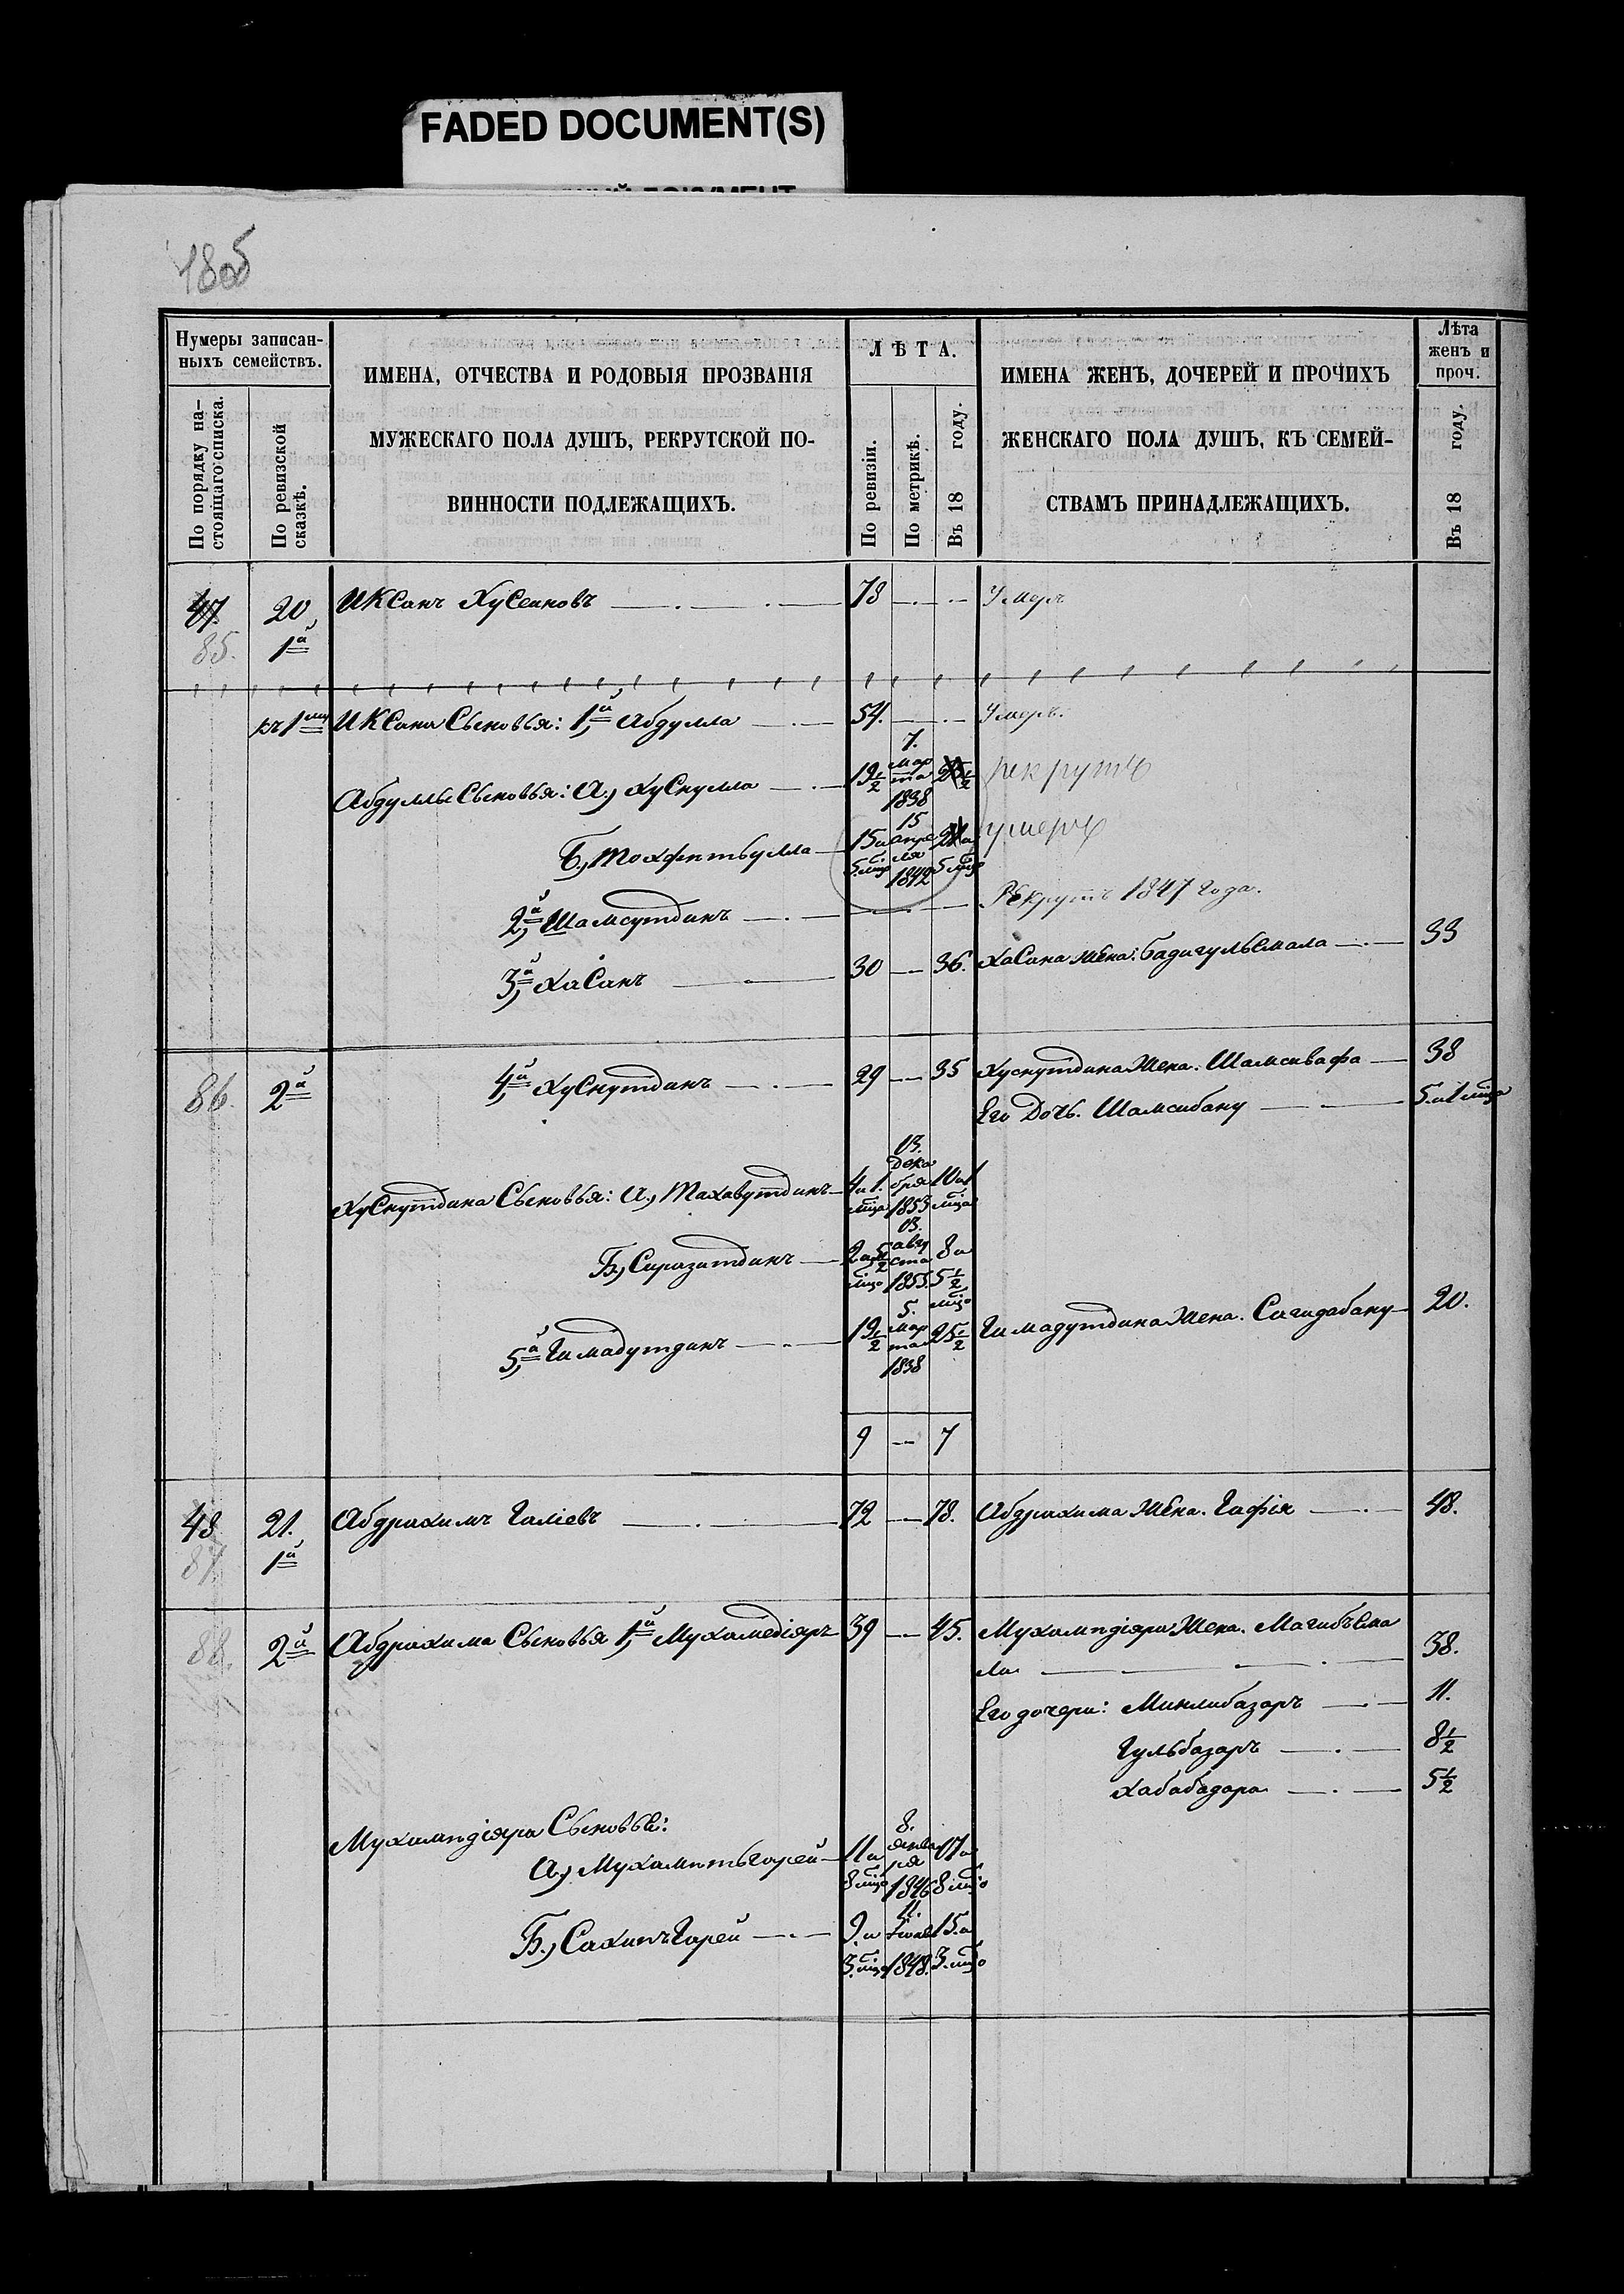 FADED DOCUMENT(S)
18об
Нумеры записан-
ныхъ семействъ.
По порядку на-
стоящаго списка.
По ревизской
сказкѣ.
ИМЕНА, ОТЧЕСТВА И РОДОВЫЯ ПРОЗВАНІЯ
МУЖЕСКАГО ПОЛА ДУШЪ, РЕКРУТСКОЙ ПО-
ВИННОСТИ ПОДЛЕЖАЩИХЪ.
ЛѢТА.
По ревизіи.
По метрикѣ.
Въ 18 году.
ИМЕНА ЖЕНЪ, ДОЧЕРЕЙ И ПРОЧИХЪ
ЖЕНСКАГО ПОЛА ДУШЪ, КЪ СЕМЕЙ-
СТВАМЪ ПРИНАДЛЕЖАЩИХЪ.
Лѣта
женъ и
проч.
Въ 18 году.
47. 20 Иксанъ Хусеиновъ 78 Умеръ
85. 1й
къ 1му Иксана Сыновья: 1,й Абдулла 54. Умеръ.
Абдуллы Сыновья: А.) Хуснулла 19½ 7. марта 1838 рекрутъ
Б.) Тохфетвулла 15 и 5 мцо 15 апреля 1842 5 мцо умеръ
2,й Шамсутдинъ Рекрутъ 1847 года.
3,й Хасанъ 30 36. Хасана жена: Бадигульсмала 33
86. 2й 4,й Хуснутдинъ 29 35 Хуснутдина Жена. Шамсивафа 38
Его Дочь. Шамсибану 5 и 1 мцо
Хуснутдина Сыновья: А.) Тахавутдинъ 4 и 1. мцо 13. декабря 1853 10 и 1 мцо
Б.) Сиразитдинъ 2 и 5½ мцо 13. августа 1855. 8 и 5½ мцо
5,й Гимадутдинъ 19½ 5. марта 1838 25½ Гимадутдина Жена. Сагидабану 20.
9 7
48 21. Абдрахимъ Галіевъ 72 78. Абдрахима Жена. Гафія 48.
87. 1й
88. 2й Абдрахима Сыновья 1,й Мухамедіяръ 39 45. Мухамедіяра Жена. Магибъема
ла 38.
Его дочери: Минлибазаръ 11.
Гульбазаръ 8½
Хабабадара 5½
Мухамедіяра Сыновья:
А.) Мухаметьгарей 11 и 8 мцо 8. января 1846 17 и 8 мцо
Б.) Сахипъгарей 9. и 3. мцо 11. Іюня 1848. 15. и 3. мцо